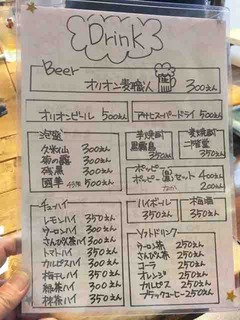 Drink
Beer
オリオン麦職人 300えん
オリオンビール 500えん
アサヒスーパードライ 500えん
泡盛
久米仙 300えん
菊の露 300えん
残黒 300えん
国華 500えん
芋焼酎
黒霧島 350えん
麦焼酎
二階堂 350えん
ホッピー
ホッピー黒セット 400えん
なか 200えん
チューハイ
レモンハイ 350えん
ウーロンハイ 300えん
さんぴん茶ハイ 300えん
トマトハイ 350えん
カルピスハイ 300えん
梅干しハイ 350えん
緑茶ハイ 350えん
抹茶ハイ 350えん
ハイボール 350えん
梅酒 350えん
ソフトドリンク
ウーロン茶 250えん
さんぴん茶 250えん
コーラ 250えん
オレンジ 250えん
カルピス 250えん
ブラックコーヒー 250えん